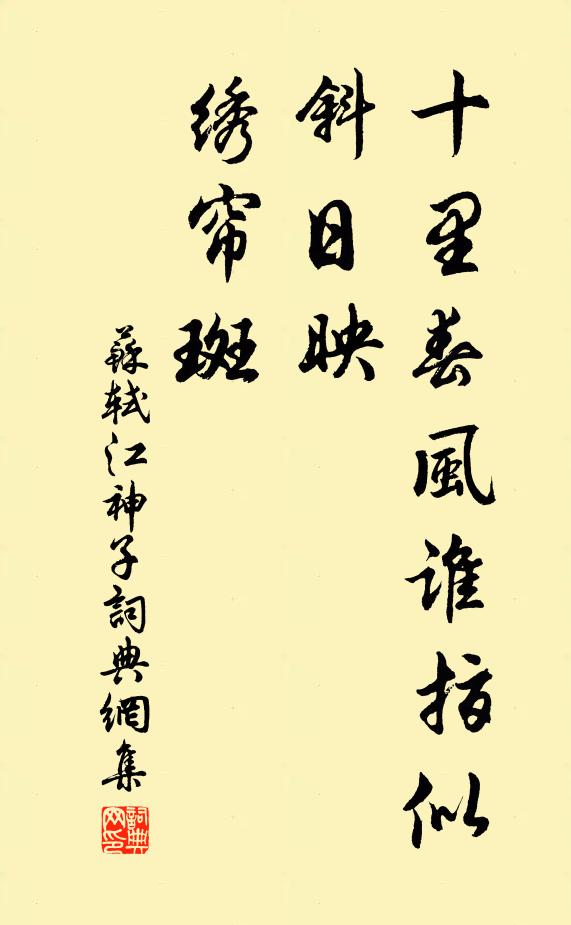 十里春風誰指似
斜日映
绣帘斑
蘇軾江神子詞典網集
詞典网印